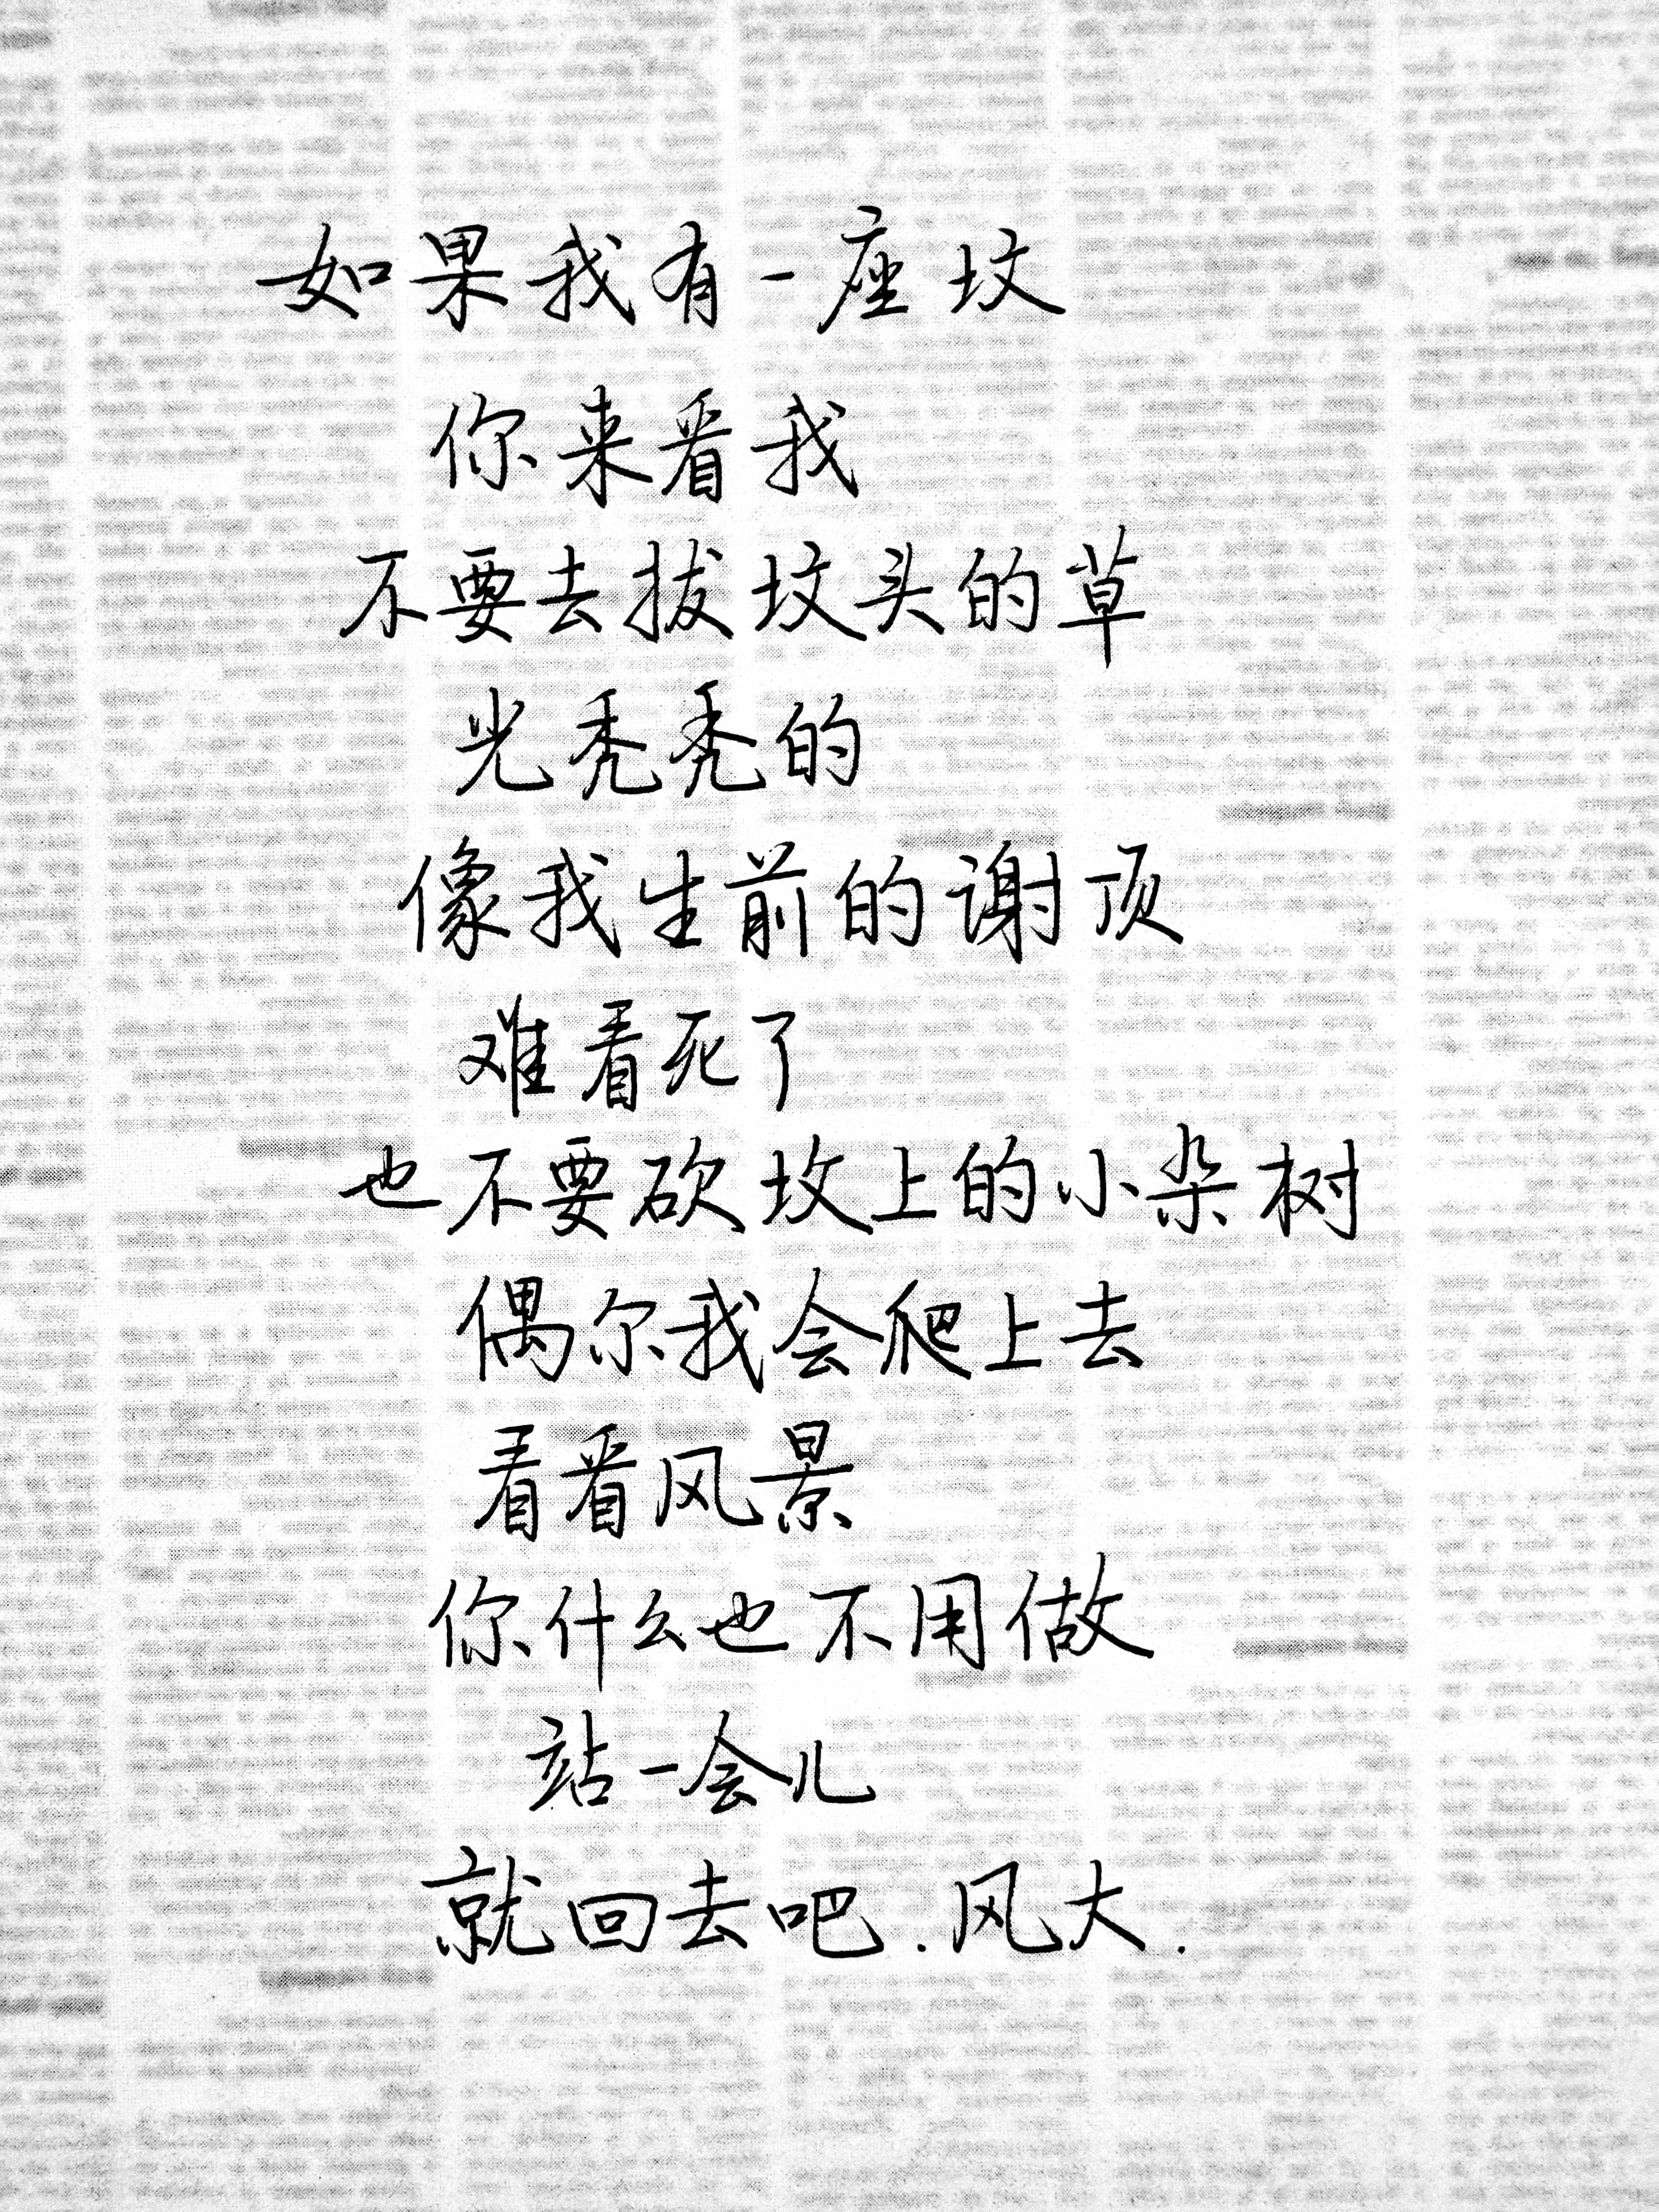 如果我有一座坟
你来看我
不要去拔坟头的草
光秃秃的
像我生前的谢顶
难看死了
也不要砍坟上的小杂树
偶尔我会爬上去
看看风景
你什么也不用做
站一会儿
就回去吧.风大.